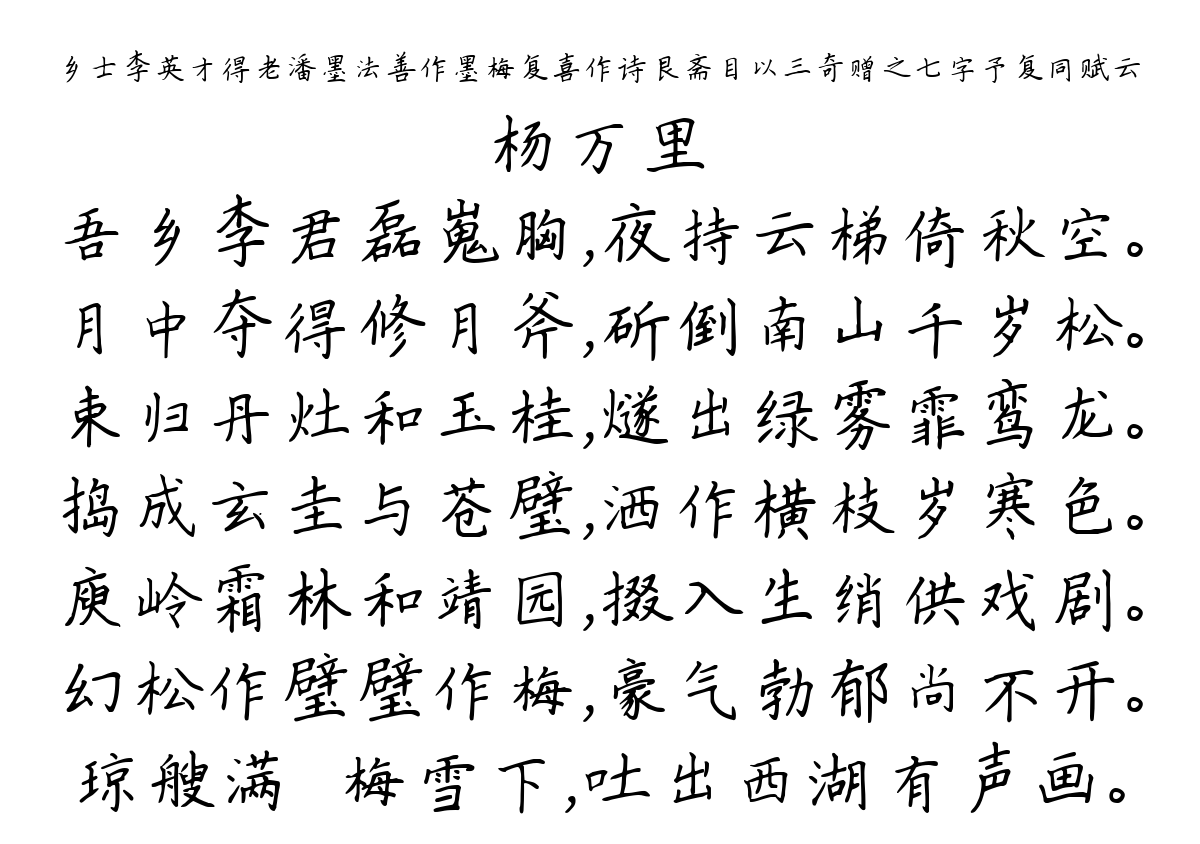 乡士李英才得老潘墨法善作墨梅复喜作诗艮斋目以三奇赠之七字予复同赋云
杨万里
吾乡李君磊嵬胸,夜持云梯倚秋空。
月中夺得修月斧,斫倒南山千岁松。
束归丹灶和玉桂,燧出绿雾霏鸾龙。
捣成玄圭与苍璧,洒作横枝岁寒色。
庾岭霜林和靖园,掇入生绡供戏剧。
幻松作璧璧作梅,豪气勃郁尚不开。
琼艘满 梅雪下,吐出西湖有声画。